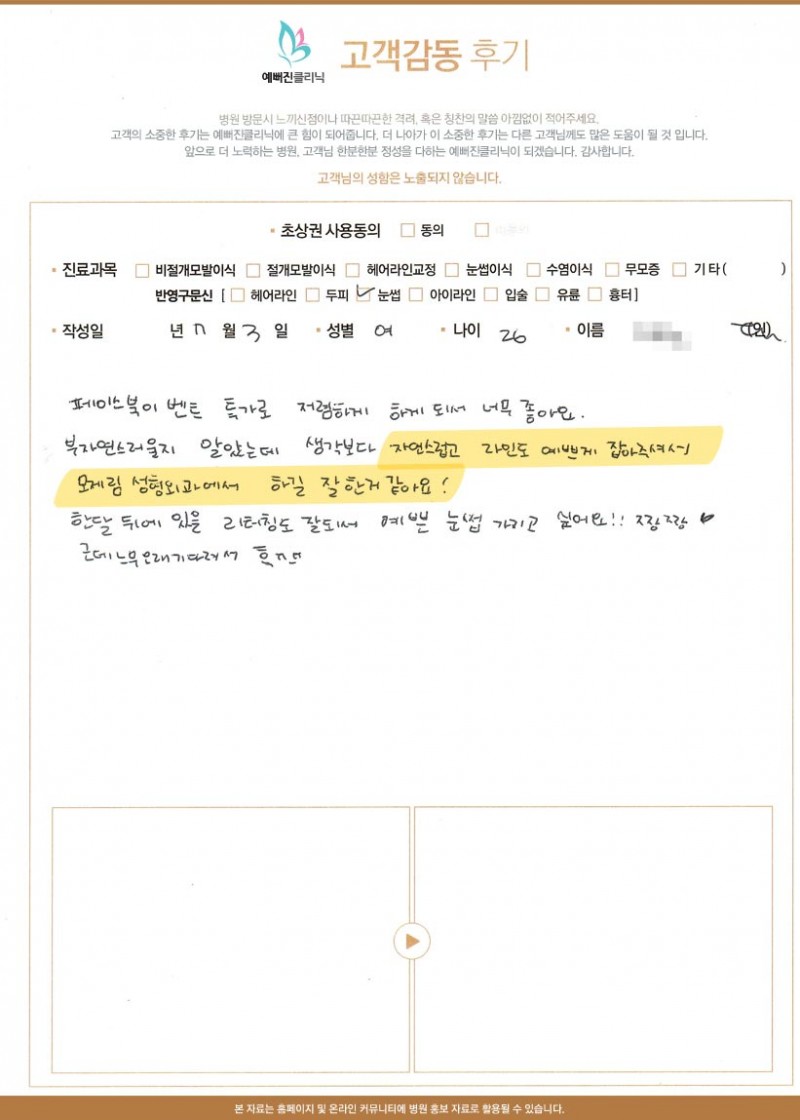 예뻐진클리닉
고객감동 후기
병원 방문시 느끼신점이나 따끈따끈한 격려, 혹은 칭찬의 말씀 아낌없이 적어주세요.
고객의 소중한 후기는 예뻐진클리닉에 큰 힘이 되어줍니다. 더 나아가 이 소중한 후기는 다른 고객님께도 많은 도움이 될 것 입니다.
앞으로 더 노력하는 병원, 고객님 한분한분 정성을 다하는 예뻐진클리닉이 되겠습니다. 감사합니다.
고객님의 성함은 노출되지 않습니다.
• 초상권 사용동의 □ 동의 □
• 진료과목 □ 비절개모발이식 □ 절개모발이식 □ 헤어라인교정 □ 눈썹이식 □ 수염이식 □ 무모증 □ 기타( )
반영구문신 [ □ 헤어라인 □ 두피 ☑ 눈썹 □ 아이라인 □ 입술 □ 유륜 □ 흉터 ]
• 작성일 년 월 3 일 • 성별 여 • 나이 26 • 이름 (인)
페이스북이벤트 특가로 저렴하게 하게 되서 너무 좋아요.
부자연스러울지 알았는데 생각보다 자연스럽고 라인도 예쁘게 잡아주셔서
모제림 성형외과에서 하길 잘한거 같아요!
한달 뒤에 있을 리터칭도 잘되서 예쁜 눈썹 가지고 싶어요!! 짱짱 ♥
근데 너무 오래기다려서 흑ㅠㅠ
본 자료는 홈페이지 및 온라인 커뮤니티에 병원 홍보 자료로 활용될 수 있습니다.